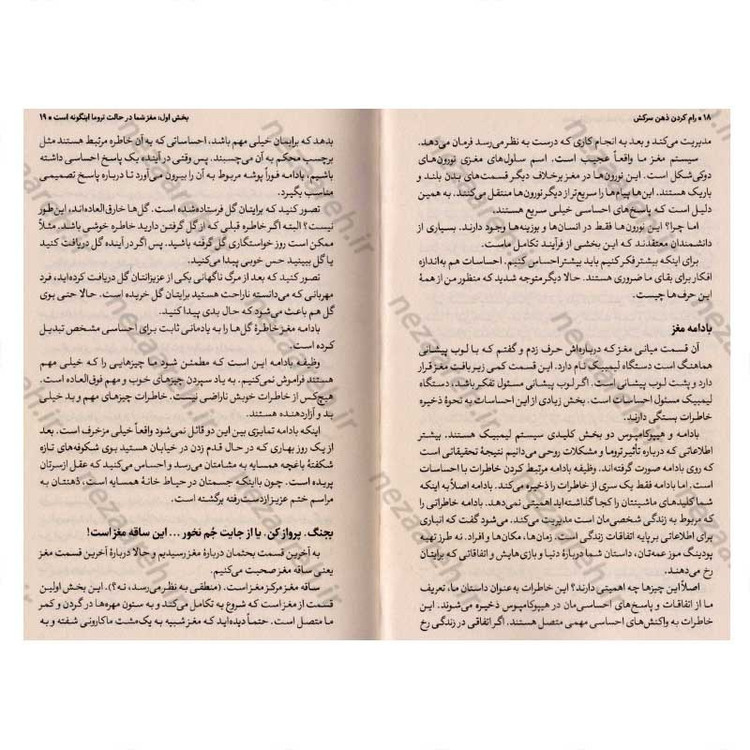 ۱۸ • رام کردن ذهن سرکش
مدیریت می‌کند و بعد به انجام کاری که درست به نظر می‌رسد فرمان می‌دهد.
سیستم مغز ما واقعاً عجیب است. اسم سلول‌های مغزی نورون‌های
دوکی‌شکل است. این نورون‌ها در مغز برخلاف دیگر قسمت‌های بدن بلند و
باریک هستند، این‌ها پیام‌ها را سریع‌تر از دیگر نورون‌ها منتقل می‌کنند. به همین
دلیل است که پاسخ‌های احساسی خیلی سریع هستند.
اما چرا؟ این نورون‌ها فقط در انسان‌ها و بوزینه‌ها وجود دارند. بسیاری از
دانشمندان معتقدند که این بخشی از فرآیند تکامل ماست.
برای اینکه بیشتر فکر کنیم باید بیشتر احساس کنیم. احساسات هم به‌اندازه
افکار برای بقای ما ضروری هستند. حالا دیگر متوجه شدید که منظور من از همهٔ
این حرف‌ها چیست.
بادامه مغز
آن قسمت میانی مغز که درباره‌اش حرف زدم و گفتم که با لوب پیشانی
هماهنگ است دستگاه لیمبیک نام دارد. این قسمت کمی زیر بافت مغز قرار
دارد و پشت لوب پیشانی است. اگر لوب پیشانی مسئول تفکر باشد، دستگاه
لیمبیک مسئول احساسات است. بخش زیادی از این احساسات به نحوهٔ ذخیره
خاطرات بستگی دارند.
بادامه و هیپوکامپوس دو بخش کلیدی سیستم لیمبیک هستند. بیشتر
اطلاعاتی که درباره تأثیر تروما و مشکلات روحی می‌دانیم نتیجهٔ تحقیقاتی است
که روی بادامه صورت گرفته‌اند. وظیفه بادامه مرتبط کردن خاطرات با احساسات
است. اما بادامه فقط یک سری از خاطرات را ذخیره می‌کند. بادامه اصلاً به اینکه
شما کلیدهای ماشینتان را کجا گذاشته‌اید اهمیتی نمی‌دهد. بادامه خاطراتی را
که مربوط به زندگی شخصی‌مان است مدیریت می‌کند، می‌شود گفت که انباری
برای اطلاعاتی بر پایه اتفاقات زندگی است. زمان‌ها، مکان‌ها و افراد. نه طرز تهیه
پودینگ موز عمه‌تان، داستان شما درباره دنیا و بازی‌هایش و اتفاقاتی که برایتان
رخ می‌دهند.
اصلاً این چیزها چه اهمیتی دارند؟ این خاطرات به‌عنوان داستان ما، تعریف
ما از اتفاقات و پاسخ‌های احساسی‌مان در هیپوکامپوس ذخیره می‌شوند. این
خاطرات به واکنش‌های احساسی مهمی متصل هستند. اگر اتفاقی در زندگی رخ
بخش اول: مغز شما در حالت تروما اینگونه است • ۱۹
بدهد که برایمان خیلی مهم باشد، احساساتی که به آن خاطره مرتبط هستند مثل
برچسب محکم به آن می‌چسبند. پس وقتی در آینده یک پاسخ احساسی داشته
باشیم، بادامه فوراً پوشه مربوط به آن را بیرون می‌آورد تا درباره پاسخ تصمیمی
مناسب بگیرد.
تصور کنید که برایتان گل فرستاده شده است. گل‌ها خارق‌العاده‌اند، این‌طور
نیست؟ البته اگر خاطره قبلی که از گل گرفتن دارید خاطره خوشی باشد. مثلاً
ممکن است روز خواستگاری گل گرفته باشید. پس اگر در آینده گل دریافت کنید
یا گل ببینید حس خوبی پیدا می‌کنید.
تصور کنید که بعد از مرگ ناگهانی یکی از عزیزانتان گل دریافت کرده‌اید، فرد
مهربانی که می‌دانسته ناراحت هستید برایتان گل خریده است. حالا حتی بوی
گل هم باعث می‌شود که حال بدی پیدا کنید.
بادامه مغز خاطرهٔ گل‌ها را به یادمانی ثابت برای احساسی مشخص تبدیل
کرده است.
وظیفه بادامه این است که مطمئن شود ما چیزهایی را که خیلی مهم
هستند فراموش نمی‌کنیم. به یاد سپردن چیزهای خوب و مهم فوق‌العاده است.
هیچ‌کس از خاطرات خوبش ناراضی نیست. خاطرات چیزهای مهم و بد خیلی
بد و آزاردهنده هستند.
اینکه بادامه تمایزی بین این دو قائل نمی‌شود واقعاً خیلی مزخرف است. بعد
از یک روز بهاری که در حال قدم زدن در خیابان هستید بوی شکوفه‌های تازه
شکفتهٔ باغچه همسایه به مشامتان می‌رسد و احساس می‌کنید که عقل از سرتان
پریده است. چون بااینکه جسمتان در حیاط خانهٔ همسایه است، ذهنتان به
مراسم ختم عزیز ازدست‌رفته برگشته است.
بجنگ. پرواز کن. یا از جایت جُم نخور ... این ساقه مغز است!
به آخرین قسمت بحثمان دربارهٔ مغز رسیدیم و حالا دربارهٔ آخرین قسمت مغز
یعنی ساقه مغز صحبت می‌کنیم.
ساقه مغز مرکز مغز است. (منطقی به نظر می‌رسد، نه؟). این بخش اولین
قسمت از مغز است که شروع به تکامل می‌کند و به ستون مهره‌ها در گردن و کمر
ما متصل است. حتماً دیده‌اید که مغز شبیه به یک‌مشت ماکارونی شفته و به
nezaareh.ir